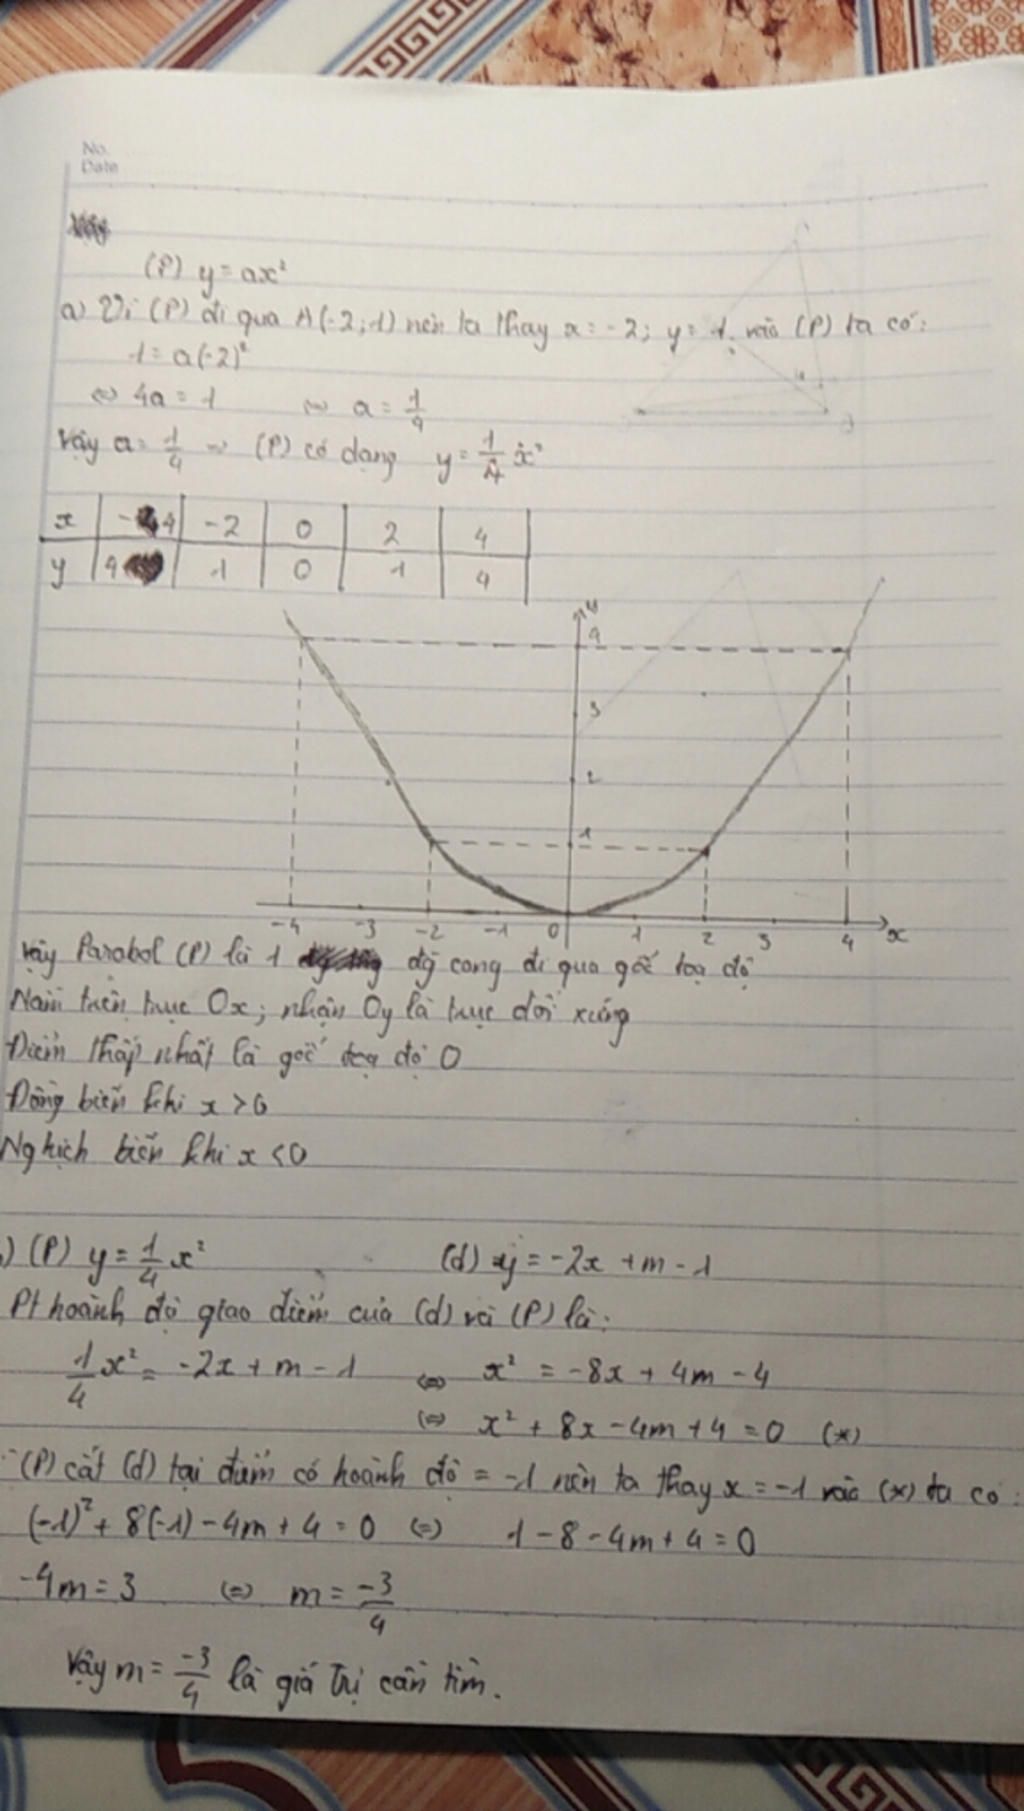 No.
Date
(P) y = ax²
a) Vì (P) đi qua A(-2;1) nên ta thay x = -2; y = 1 vào (P) ta có:
1 = a(-2)²
⇔ 4a = 1 ⇔ a = 1/4
Vậy a = 1/4 ⇒ (P) có dạng y = 1/4 x²
x | -4 | -2 | 0 | 2 | 4
y | 4 | 1 | 0 | 1 | 4
y
4
3
2
1
-4 -3 -2 -1 0 1 2 3 4 x
Vậy Parabol (P) là 1 đg cong đi qua gốc toạ độ
Nằm trên trục Ox; nhận Oy là trục đối xứng
Điểm thấp nhất là gốc toạ độ O
Đồng biến khi x > 0
Nghịch biến khi x < 0
) (P) y = 1/4 x² (d) y = -2x + m - 1
Pt hoành độ giao điểm của (d) và (P) là:
1/4 x² = -2x + m - 1 ⇔ x² = -8x + 4m - 4
⇔ x² + 8x - 4m + 4 = 0 (*)
(P) cắt (d) tại điểm có hoành độ = -1 nên ta thay x = -1 vào (*) ta có:
(-1)² + 8(-1) - 4m + 4 = 0 ⇔ 1 - 8 - 4m + 4 = 0
-4m = 3 ⇔ m = -3/4
Vậy m = -3/4 là giá trị cần tìm.